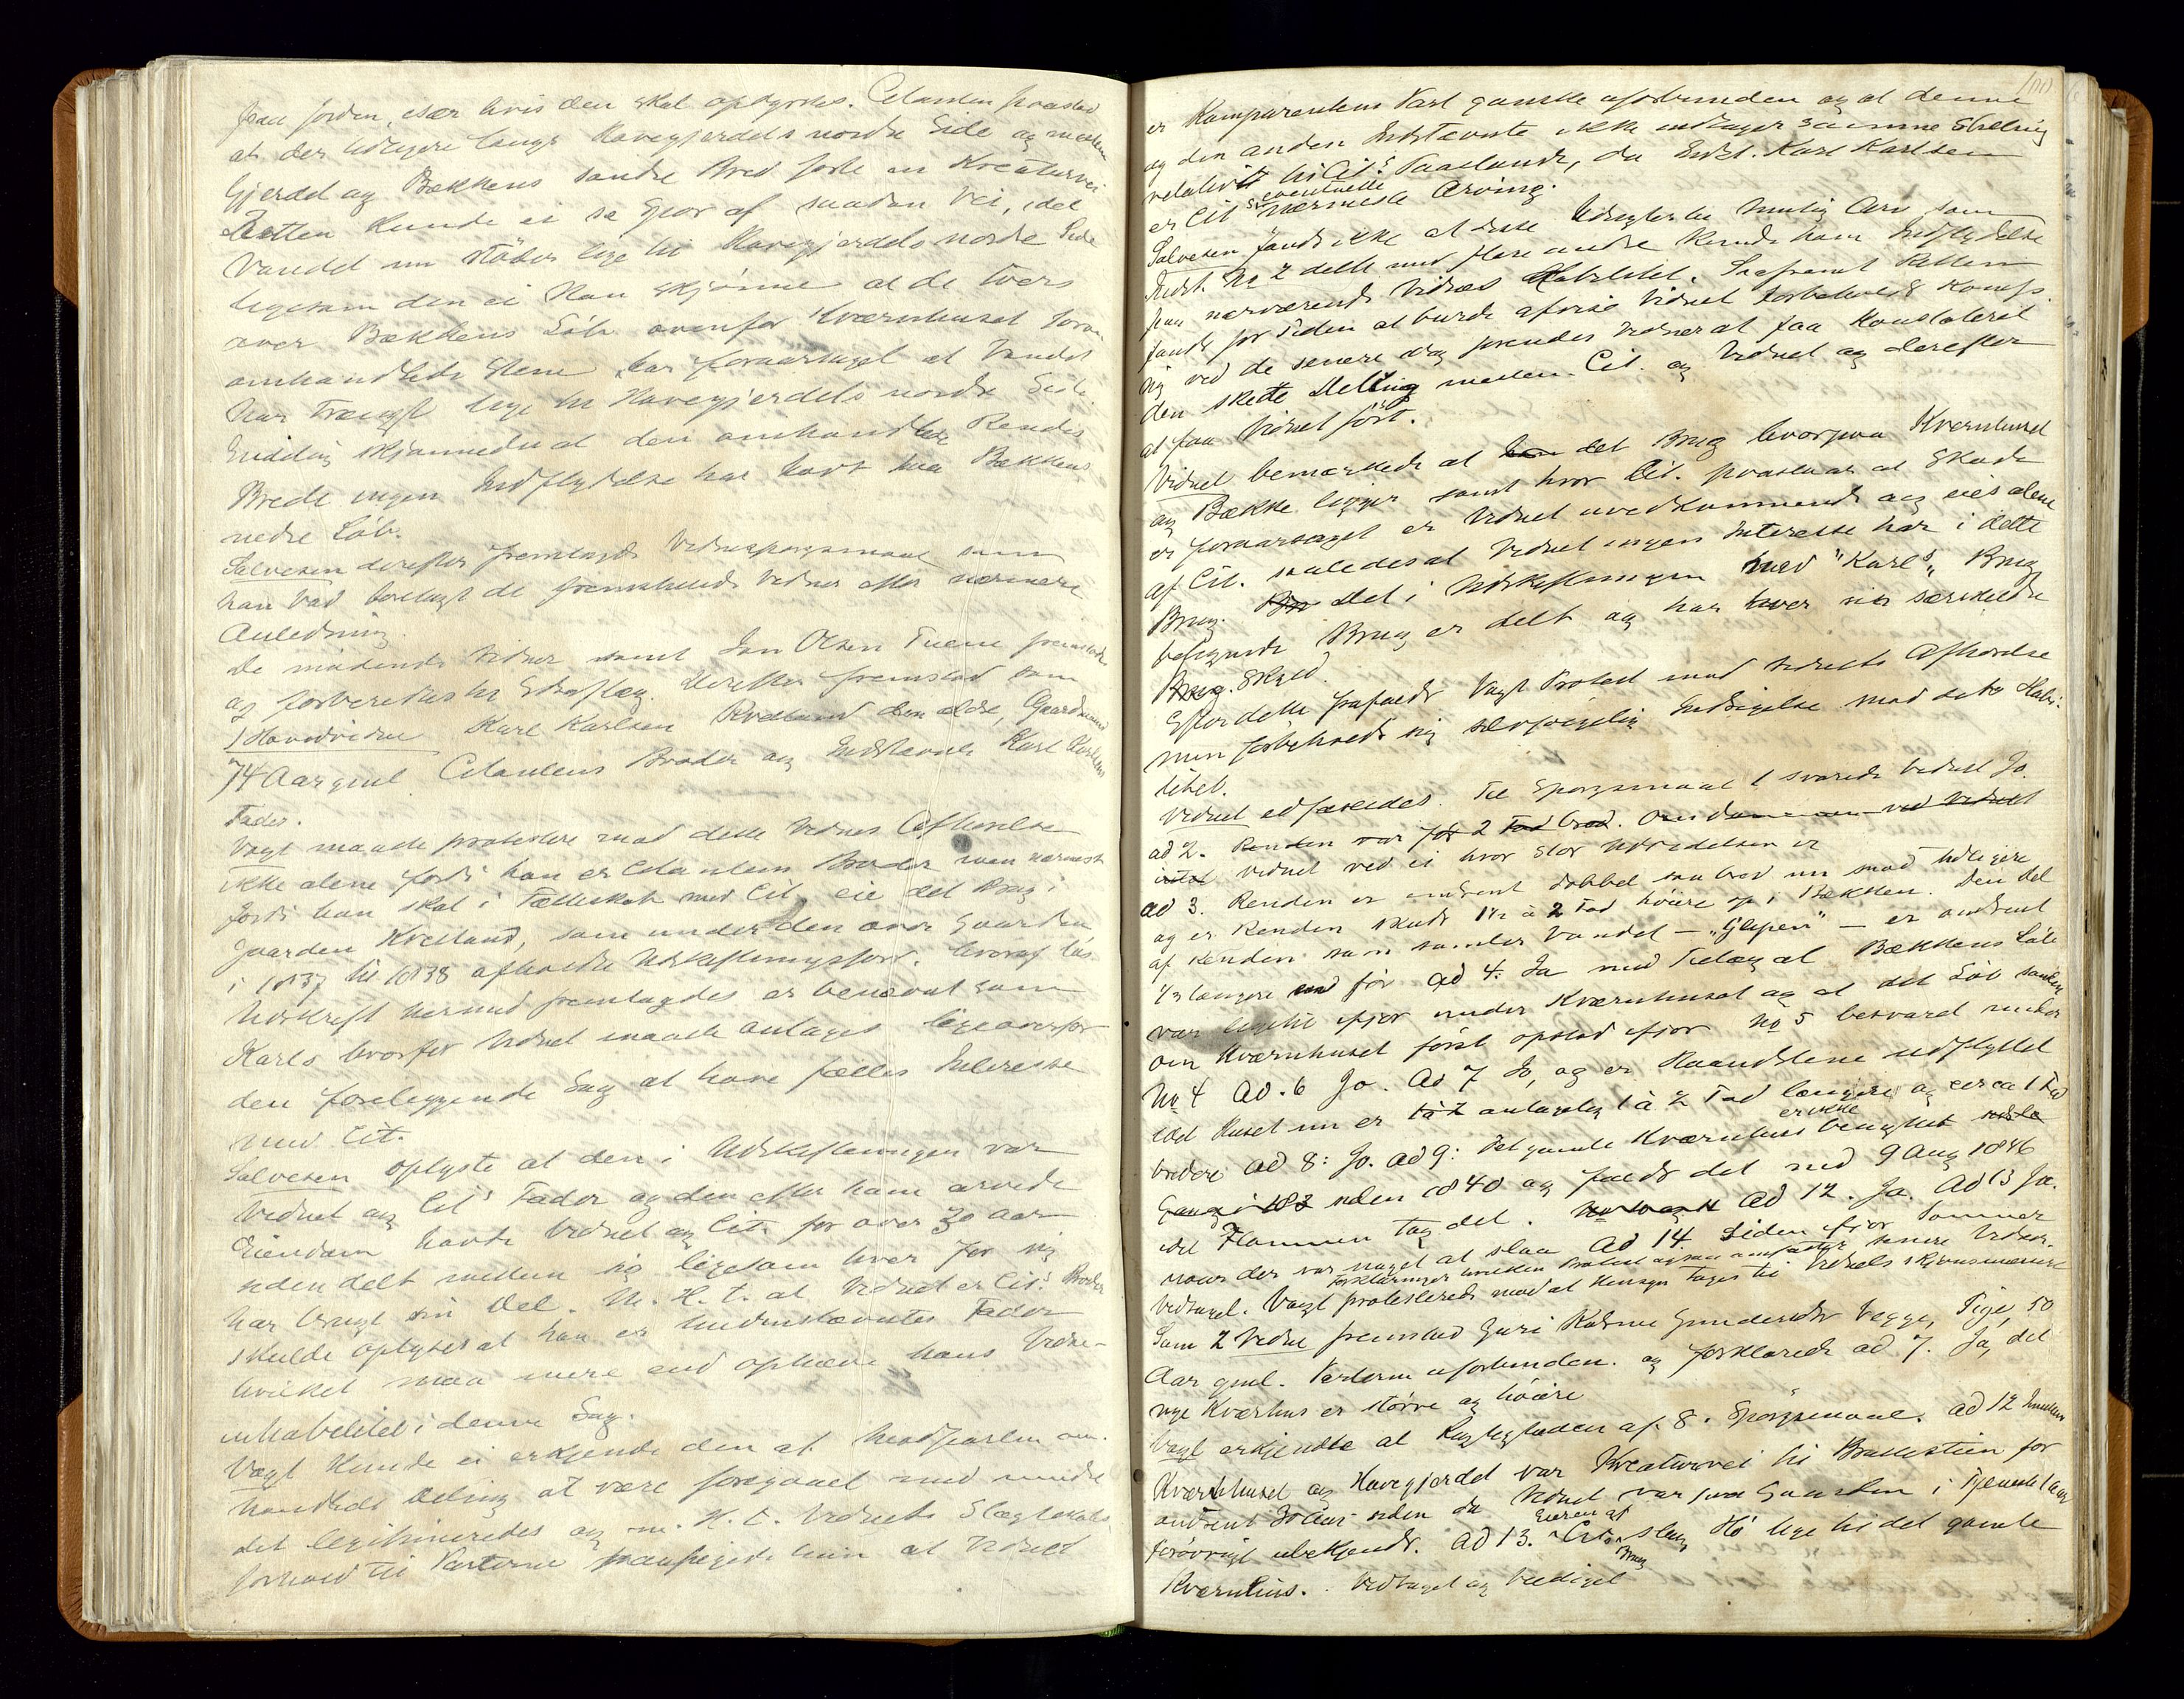 paa Jorden, især hvis den skal opdyrkes. Citanten paastod
at der tidligere langs Havegjerdets nordre Side og mellem
Gjerdet og Bækkens søndre Bred førte en Kreaturvei
Retten kunde ei se Spor af saadan Vei, idet
Vandet nu støder lige til Havegjerdets nordre Side
ligesom den ei kan skjønne at de tvers
over Bækkens Løb ovenfor Kværnhuset
omhandlede Stene har foraarsaget at Vandet
har trængt lige til Havegjerdets nordre Side.
Endelig skjønnedes at den omhandlede Rendes
Brede ingen Indflydelse har havt paa Bækkens
nedre Løb.
Salvesen derefter fremlagde Vidnespørgsmaal som
han bad forelagt de fremstillede Vidner efter nærmere
Anledning.
De mødende Vidner samt Jon Olsen Tveene fremstode
og forberedtes til Edsaflæg. Derefter fremstod som
1 Hovedvidne Karl Karlsen Kvelland den ældre, Gaardmand
74 Aar gml. Citantens Broder og Indstævnte Karl Karlsens
Fader.
Vogt maatte protestere mod dette Vidnes Afhørelse
ikke alene fordi han er Citantens Broder men nærmest
fordi han skal i Fællesskab med Cit. eie det Brug i
Gaarden Kvelland, som under den over Gaarden
i 1837 til 1838 afholdte Udskiftningsforr. hvoraf
Udskrift hermed fremlagdes er benævnt som
Karls hvorfor Vidnet maatte antages ligeoverfor
den foreliggende Sag at have fælles Interesse
med Cit.
Salvesen oplyste at den i Udskiftningen var
Vidnet og Cit.s Fader og den efter ham arvede
Eiendom havde Vidnet og Cit. for over 30 Aar
siden delt mellem sig ligesom hver for sig
har brugt sin Del. M. H. t. at Vidnet er Cit.s Broder
skulde oplyses at han er Medindstævntes Fader
hvilket maa mere end ophæve hans Vidne-
inhabilitet i denne Sag.
Vogt kunde ei erkjende den af Modparten om-
handlede Deling at være foregaaet med mindre
det legitimeredes og m. H. t. Vidnets Slægtskabs
forhold til Parterne paapegede han at Vidnet
100
er Komparentens Part ganske uforbunden og at denne
og den anden Indstævnte ikke indtager samme Stilling
relativt til Cit.s Paastande, da Indst. Karl Karlsen
er Cit.s eventuelle nærmeste Arving.
Salvesen fandt ikke at disse Udsigter til mulig Arv som
Indst. No 2 delte med flere andre kunde have Indflydelse
paa nærværende Vidnes Habilitet. Saafremt Retten
fandt for Tiden at burde afvise Vidnet forbeholdt Komp.
sig ved de senere Vidner at faa konstateret
den skette Deling mellem Cit. og Vidnet og derefter
at faa Vidnet ført.
Vidnet bemærkede at det Brug hvorpaa Kvernhuset
og Bække ligger samt hvor Cit. paastaar at Skade
er foraarsaget er Vidnet uvedkommende og eies alene
af Cit. saaledes at Vidnet ingen Interesse har i dette
Brug. Det i Udskiftningen med "Karls" Brug
betegnede Brug er delt og har hver sin særskilte
Skyld.
Efter dette frafaldt Vogt Protest mod Vidnets Afhørelse
men forbeholdt sig selvfølgelig Indsigelse mod dets Habi-
litet.
Vidnet edfæstedes. Til Spørgsmaal 1 svarede Vidnet Jo.
ad 2. Renden var før 2 Fod bred. Om Dammen ved Vidnet
intet Vidnet ved ei hvor stor Udvidelsen er
ad 3. Renden er omtrent dobbel saa bred nu mod tidligere
og er Renden skudt 1½ à 2 Fod høiere op i Bækken. Den Del
af Renden som samler Vandet – "Glepen" – er omtrent
⅓ længere end før Ad 4. Ja med Tillæg at Bækkens Løb
var lige til ifjor under Kværnhuset og at det Løb sønden
om Kværnhuset først opstod ifjor No 5 besvaret under
No 4 Ad. 6 Jo. Ad 7 Jo, og er Haandstene udflyttet
idet Huset nu er antagelig 1 à 2 Fod længere og circa 1 Fod
bredere Ad 8: Jo. Ad 9: Det gamle Kværnhus er ikke benyttet
siden 1840 og faldt det ned 9 Aug 1846
idet Flommen tog det. Ad 12. Ja. Ad 13 Ja.
naar der var noget at slaa Ad 14 Siden ifjor Sommer
Vedtaget. Vogt protesterede mod at Hensyn toges til Vidnets skjønsmæssige
Forklaringer hvilken Protest ogsaa omfatter senere Vidner.
Som 2 Vidne fremstod Guri Katrine Gundersdtr Vegge, Pige, 50
Aar gml. Parterne uforbunden. og forklarede ad 7. Ja, det
nye Kværhus er større og høiere
Vogt erkjendte at Rigtigheden af 8. Spørgsmaal. Ad 12 mellem
Kværnhuset og Havegjerdet var Kreaturvei til Brattestien for
omtrent 30 Aar siden da Vidnet var paa Gaarden i Tjeneste 1 Aar
forøvrigt ubekjendt. Ad 13. Eieren af Cit.s Brug slog Hø lige til det gamle
Kværnhus. Vedtaget og beediget